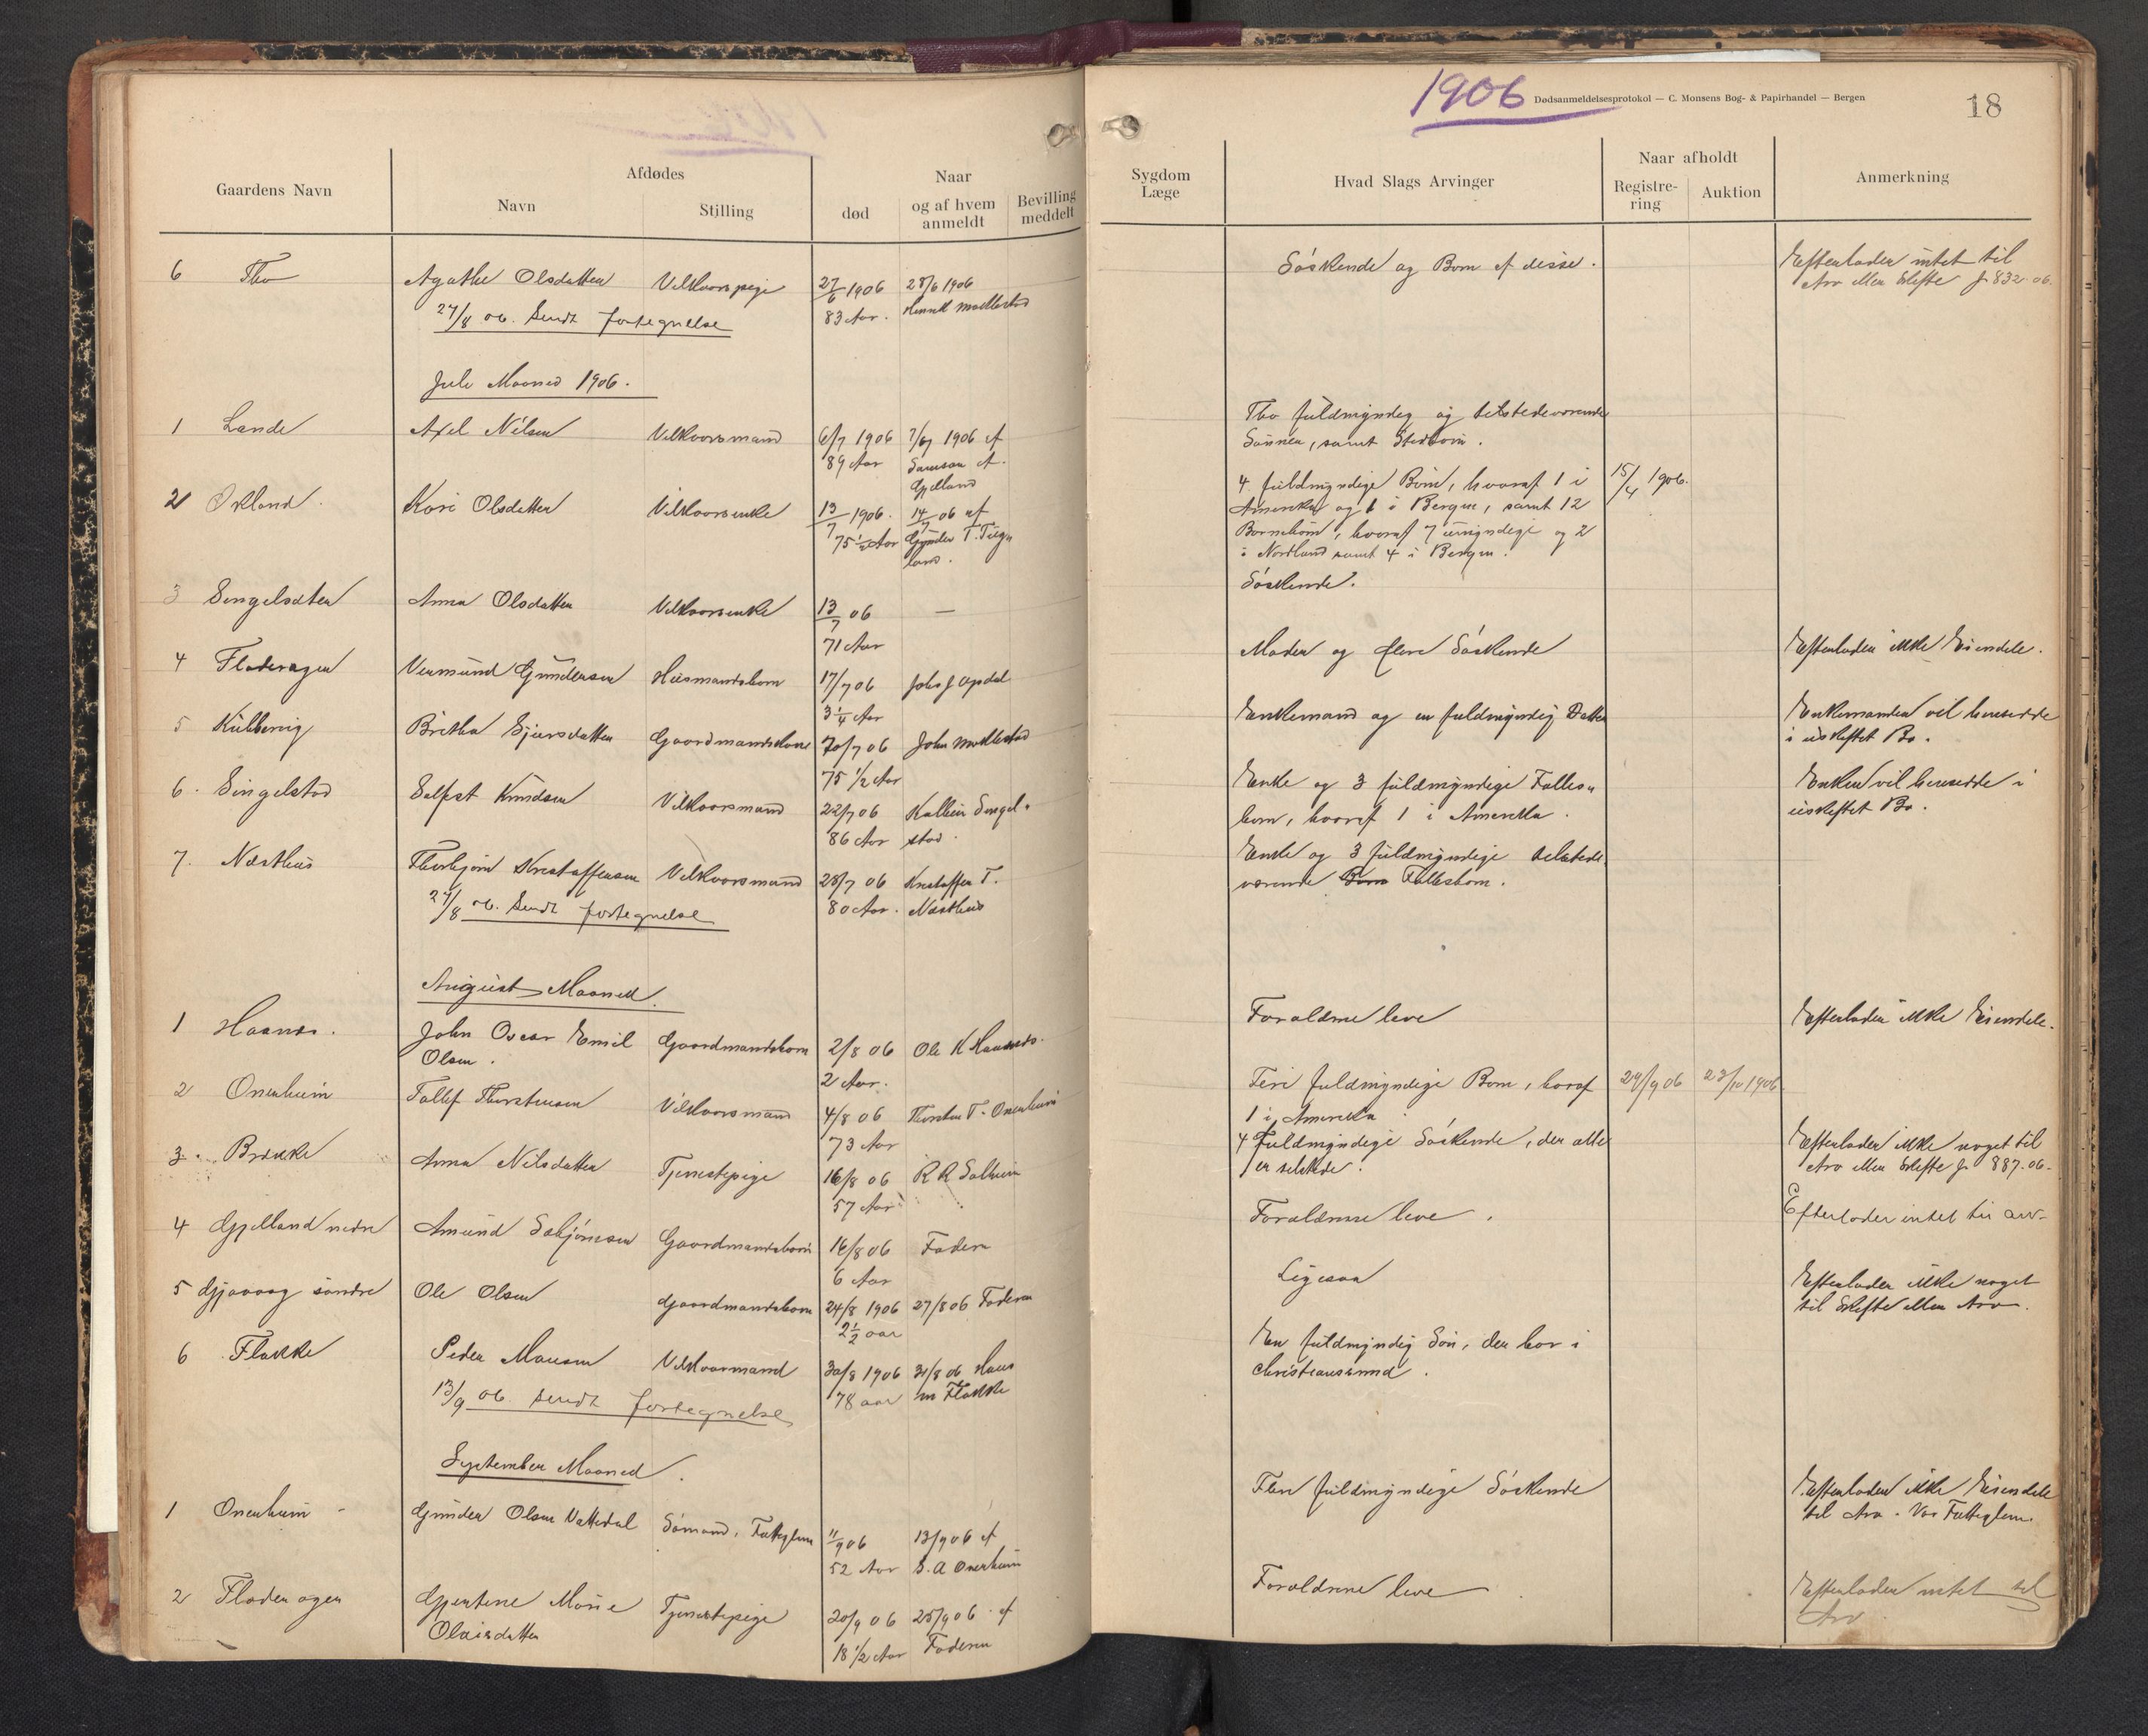 1906
Dødsanmeldelsesprotokol — C. Monsens Bog- & Papirhandel — Bergen
18
Gaardens Navn
Afdødes
Navn
Stilling
Naar
død
og af hvem
anmeldt
Bevilling
meddelt
Sygdom
Læge
Hvad Slags Arvinger
Naar afholdt
Registre-
ring
Auktion
Anmerkning
6 Tho Agathe Olsdatter Vilkaarspige 27/6 1906 28/6 1906 Søskende og Børn af disse. Efterlader intet til
27/8 06. Sendt fortegnelse 83 Aar. Henrik Mælkestad Arv eller Skifte J 832-06.
Juli Maaned 1906.
1 Lande Axel Nilsen Vilkaarsmand 6/7 1906 7/7 1906 af Tho fuldmyndig og tilstedeværende
89 Aar Samson A. Sønner, samt Stedbørn.
Gjelland
2 Økland. Kari Olsdatter Vilkaarsenke 13/7 1906. 14/7 06 af 4 fuldmyndige Børn, hvoraf 1 i 15/4 1906.
75 1/2 Aar Gunder T. Amerika og 1 i Bergen, samt 12
land. Børnebørn, hvoraf 7 umyndige og 2
i Nordland samt 4 i Bergen.
3 Sengelsæter Anna Olsdatter Vilkaarsenke 13/7 06 — Søskende.
71 Aar
4 Fladeragen Vermund Gundersen Husmandsbarn 17/7 06 Johs J Opdal Moder og flere Søskende Efterlader ikke Eiendele.
3 1/4 Aar
5 Kubbervig Britha Sjursdatter Gaardmandskone 20/7 06 John Mælkestad Enkemand og en fuldmyndig Datter Enkemanden vil hensidde
75 1/2 Aar i uskiftet Bo.
6. Singelstad Salfest Knudsen Vilkaarsmand 22/7 06 Singel- Enke og 3 fuldmyndige Fælles- Enken vil hensidde i
86 Aar stad. børn, hvoraf 1 i Amerika. uskiftet Bo.
7. Næsthus Thorbjørn Kristoffersen Vilkaarsmand 28/7 06 Kristoffer T. Enke og 3 fuldmyndige tilstede
27/8 06. Sendt fortegnelse 80 Aar. Næsthus værende Børn Fællesbørn.
August Maaned.
1 Haanes. John Oscar Emil Gaardmandsbarn 2/8 06 Ole K Haanes. Forældrene leve Efterlader ikke Eiendele.
Olsen. 2 Aar.
2 Onerheim Tollef Thorstensen Vilkaarsmand 4/8 06 Thorsten T. Onerheim Fire fuldmyndige Børn, hvoraf 29/9 06 23/10 1906
73 Aar 1 i Amerika.
3. Brække Anna Nilsdatter Tjenestepige 16/8 06 R R Solheim 4 fuldmyndige Søskende, der alle Efterlader ikke noget til
57 Aar er tilstede. Arv eller Skifte J. 887-06.
4 Gjelland nedre Amund Salbjørnsen Gaardmandsbarn 16/8 06 Faderen Forældrene leve. Efterlader intet til arv-
6 Aar
5 Gjøvaag søndre Ole Olsen Gaardmandsbarn 24/8 1906 27/8 06 Faderen Ligesaa Efterlader ikke noget
2 1/2 aar til Skifte eller Arv.
6 Flakke Peder Monsen Vilkaarmand 30/8 1906 31/8 06 Hans En fuldmyndig Søn, der bor i
13/9 06. sendt fortegnelse 78 aar Flakke Christianssund.
September Maaned.
1 Onerheim Gunder Olsen Vattedal Sømand, Fattiglem 11/9 06 13/9 06 af Flere fuldmyndige Søskende Efterlader ikke Eiendele
52 Aar S. A Onerheim til Arv. Var Fattiglem.
2 Fladeragen Gjertine Marie Tjenestepige 20/9 06 25/9 06 af Forældrene leve Efterlader intet til
Olaisdatter 18 1/2 Aar Faderen Arv